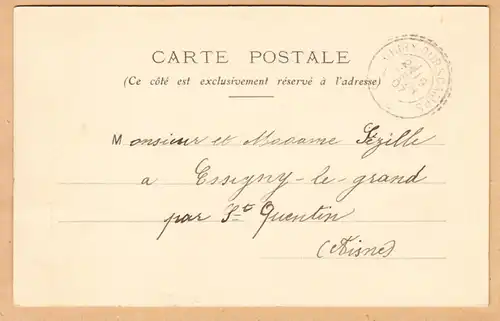 CARTE POSTALE
(Ce côté est exclusivement réservé à l'adresse)
Monsieur et Madame Fézille
a Essigny-le-grand
par St Quentin
(Aisne)